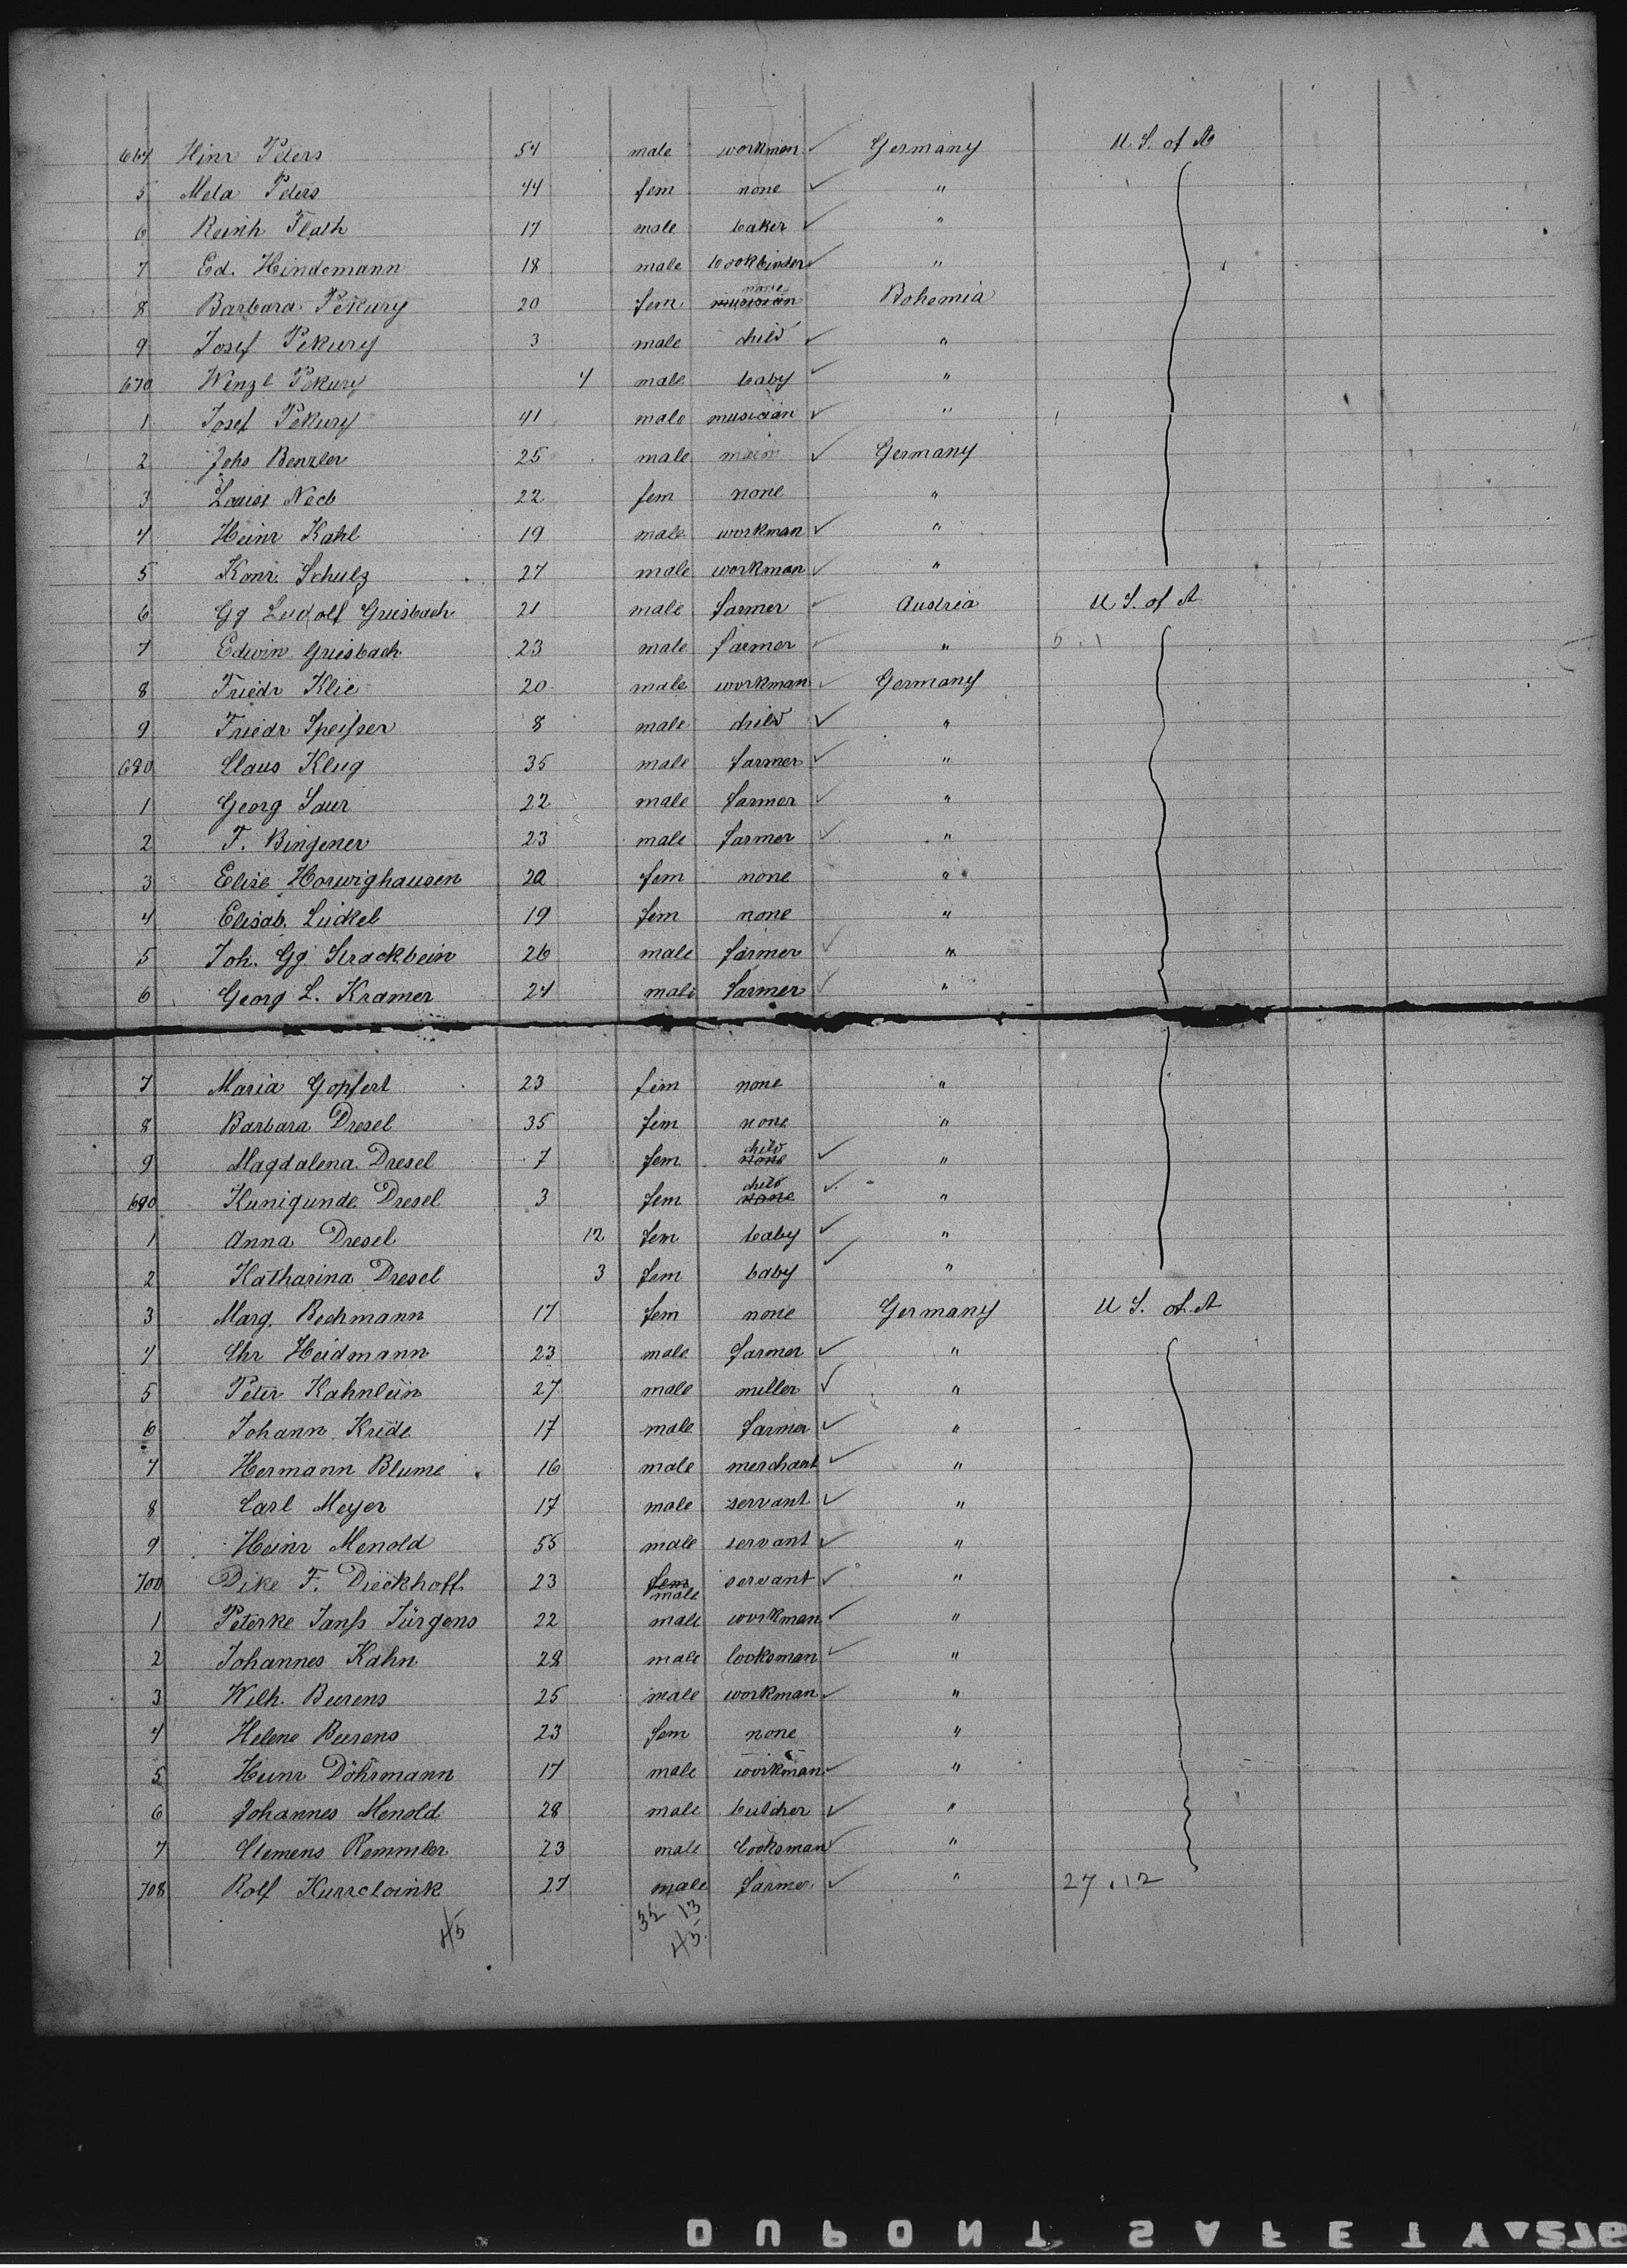 664 Hinr Peters 54 male workman ✓ Germany U. S. of A
5 Meta Peters 44 fem none ✓ "
6 Reinh Flath 17 male baker ✓ "
7 Ed. Hindemann 18 male bookbinder ✓ "
none
8 Barbara Pekury 20 fem musician Bohemia
9 Josef Pekury 3 male child ✓ "
670 Wenzl Pekury 4 male baby ✓ "
1 Josef Pekury 41 male musician ✓ "
2 Johs Benzler 25 male ✓ Germany
3 Louise 22 fem none "
4 Heinr Kahl 19 male workman ✓ "
5 Konr. Schulz 27 male workman ✓ "
6 Gg Ludolf Griesbach 21 male farmer ✓ Austria U. S. of A
7 Edwin Griesbach 23 male farmer ✓ " 5 . 1
8 Friedr Klie 20 male workman ✓ Germany
9 Friedr Speißer 8 male child ✓ "
680 Claus Klug 35 male farmer ✓ "
1 Georg Saur 22 male farmer ✓ "
2 F. Bingener 23 male farmer ✓ "
3 Elise Horwighausen 20 fem none "
4 Elisab. Luckel 19 fem none "
5 Joh. Gg. Strackbein 26 male farmer ✓ "
6 Georg L. Kramer 24 male farmer ✓ "
7 Maria Gopfert 23 fem none "
8 Barbara Dresel 35 fem none "
child
9 Magdalena Dresel 7 fem none ✓ "
child
690 Kunigunde Dresel 3 fem none ✓ "
1 Anna Dresel 12 fem baby ✓ "
2 Katharina Dresel 3 fem baby ✓ "
3 Marg. Bechmann 17 fem none Germany U S. of A
4 Chr Heidmann 23 male farmer ✓ "
5 Peter Kahnlein 27 male miller ✓ "
6 Johann Kride 17 male farmer ✓ "
7 Hermann Blume 16 male merchant ✓ "
8 Carl Meyer 17 male servant ✓ "
9 Heinr Menold 55 male servant ✓ "
700 Dike F. Dieckhoff 23 fem servant ✓ "
male
1 Peterke Janß Jürgens 22 male workman ✓ "
2 Johannes Kahn 28 male cooksman ✓ "
3 Wilh. Beerens 25 male workman ✓ "
4 Helene Beerens 23 fem none "
5 Heinr Döhrmann 17 male workman ✓ "
6 Johannes Menold 28 male butcher ✓ "
7 Clemens Remmler 23 male Cooksman ✓ "
708 Rolf Kurreloink 27 male farmer ✓ " 27 . 12
32 13
45 45
DUPONT SAFETY 276